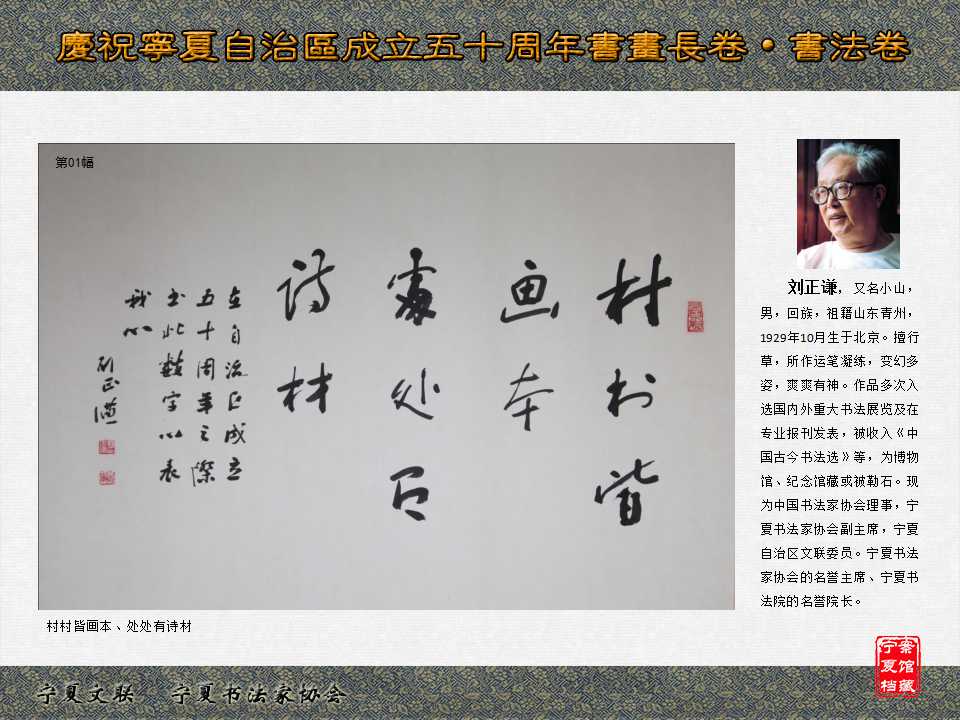 慶祝寧夏自治區成立五十周年書畫長卷•書法卷
第01幅
村村皆
画本
處处有
诗材
在自治区成立
五十周年之際
书此数字以表
我心
刘正谦
村村皆画本、处处有诗材
刘正谦，又名小山，
男，回族，祖籍山东青州，
1929年10月生于北京。擅行
草，所作运笔凝练，变幻多
姿，爽爽有神。作品多次入
选国内外重大书法展览及在
专业报刊发表，被收入《中
国古今书法选》等，为博物
馆、纪念馆藏或被勒石。现
为中国书法家协会理事，宁
夏书法家协会副主席，宁夏
自治区文联委员。宁夏书法
家协会的名誉主席、宁夏书
法院的名誉院长。
宁夏文联 宁夏书法家协会
宁夏档案馆藏